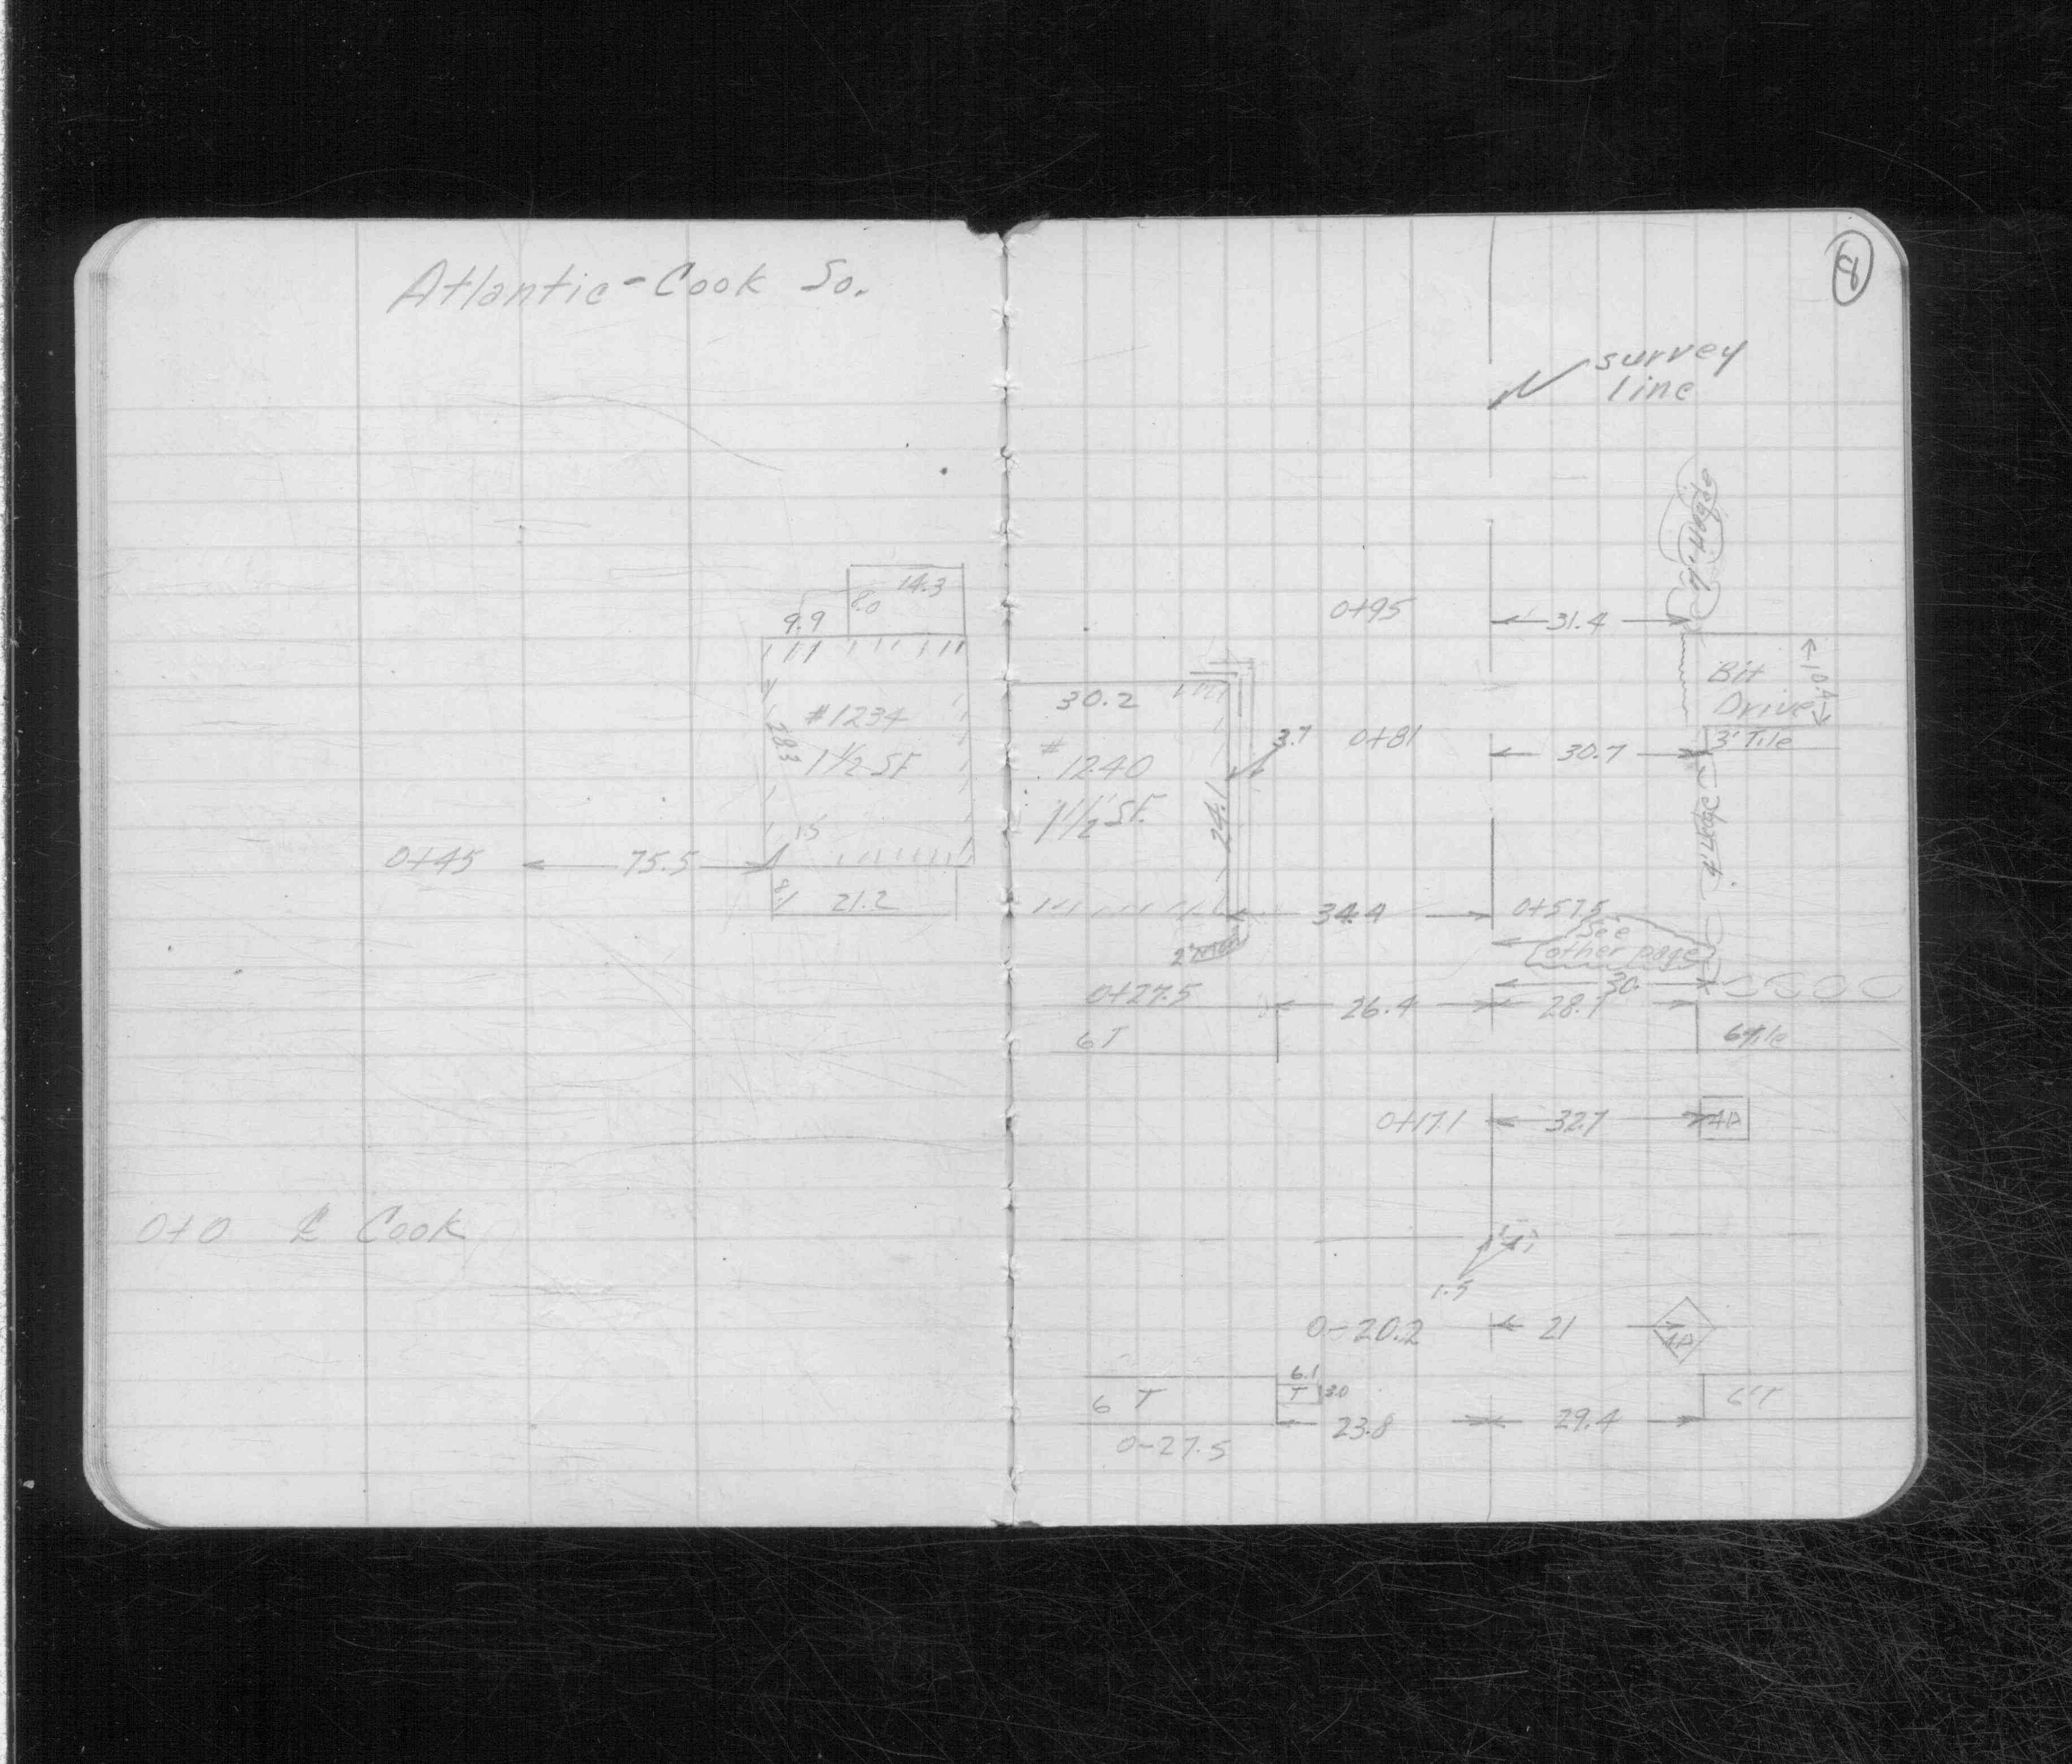 Atlantic-Cook So.
14.3
8.0
9.9
#1234
28.3
1 1/2 SF
15
0+45 75.5
8.1 21.2
0+0 ℄ Cook
survey
line
4' Hedge
0+95 31.4
Bit
Drive
10.4
3' Tile
30.2
3.7
0+81 30.7
#
1240
1 1/2 SF.
24.1
4' Hedge
34.4 0+57.5
See
other page
30
0+27.5 26.4
6 T
6' Tile
0+17.1 32.7 4A
1.5
0-20.2 21 4A
6.1
6 T T 3.0 6' T
23.8 29.4
0-27.5